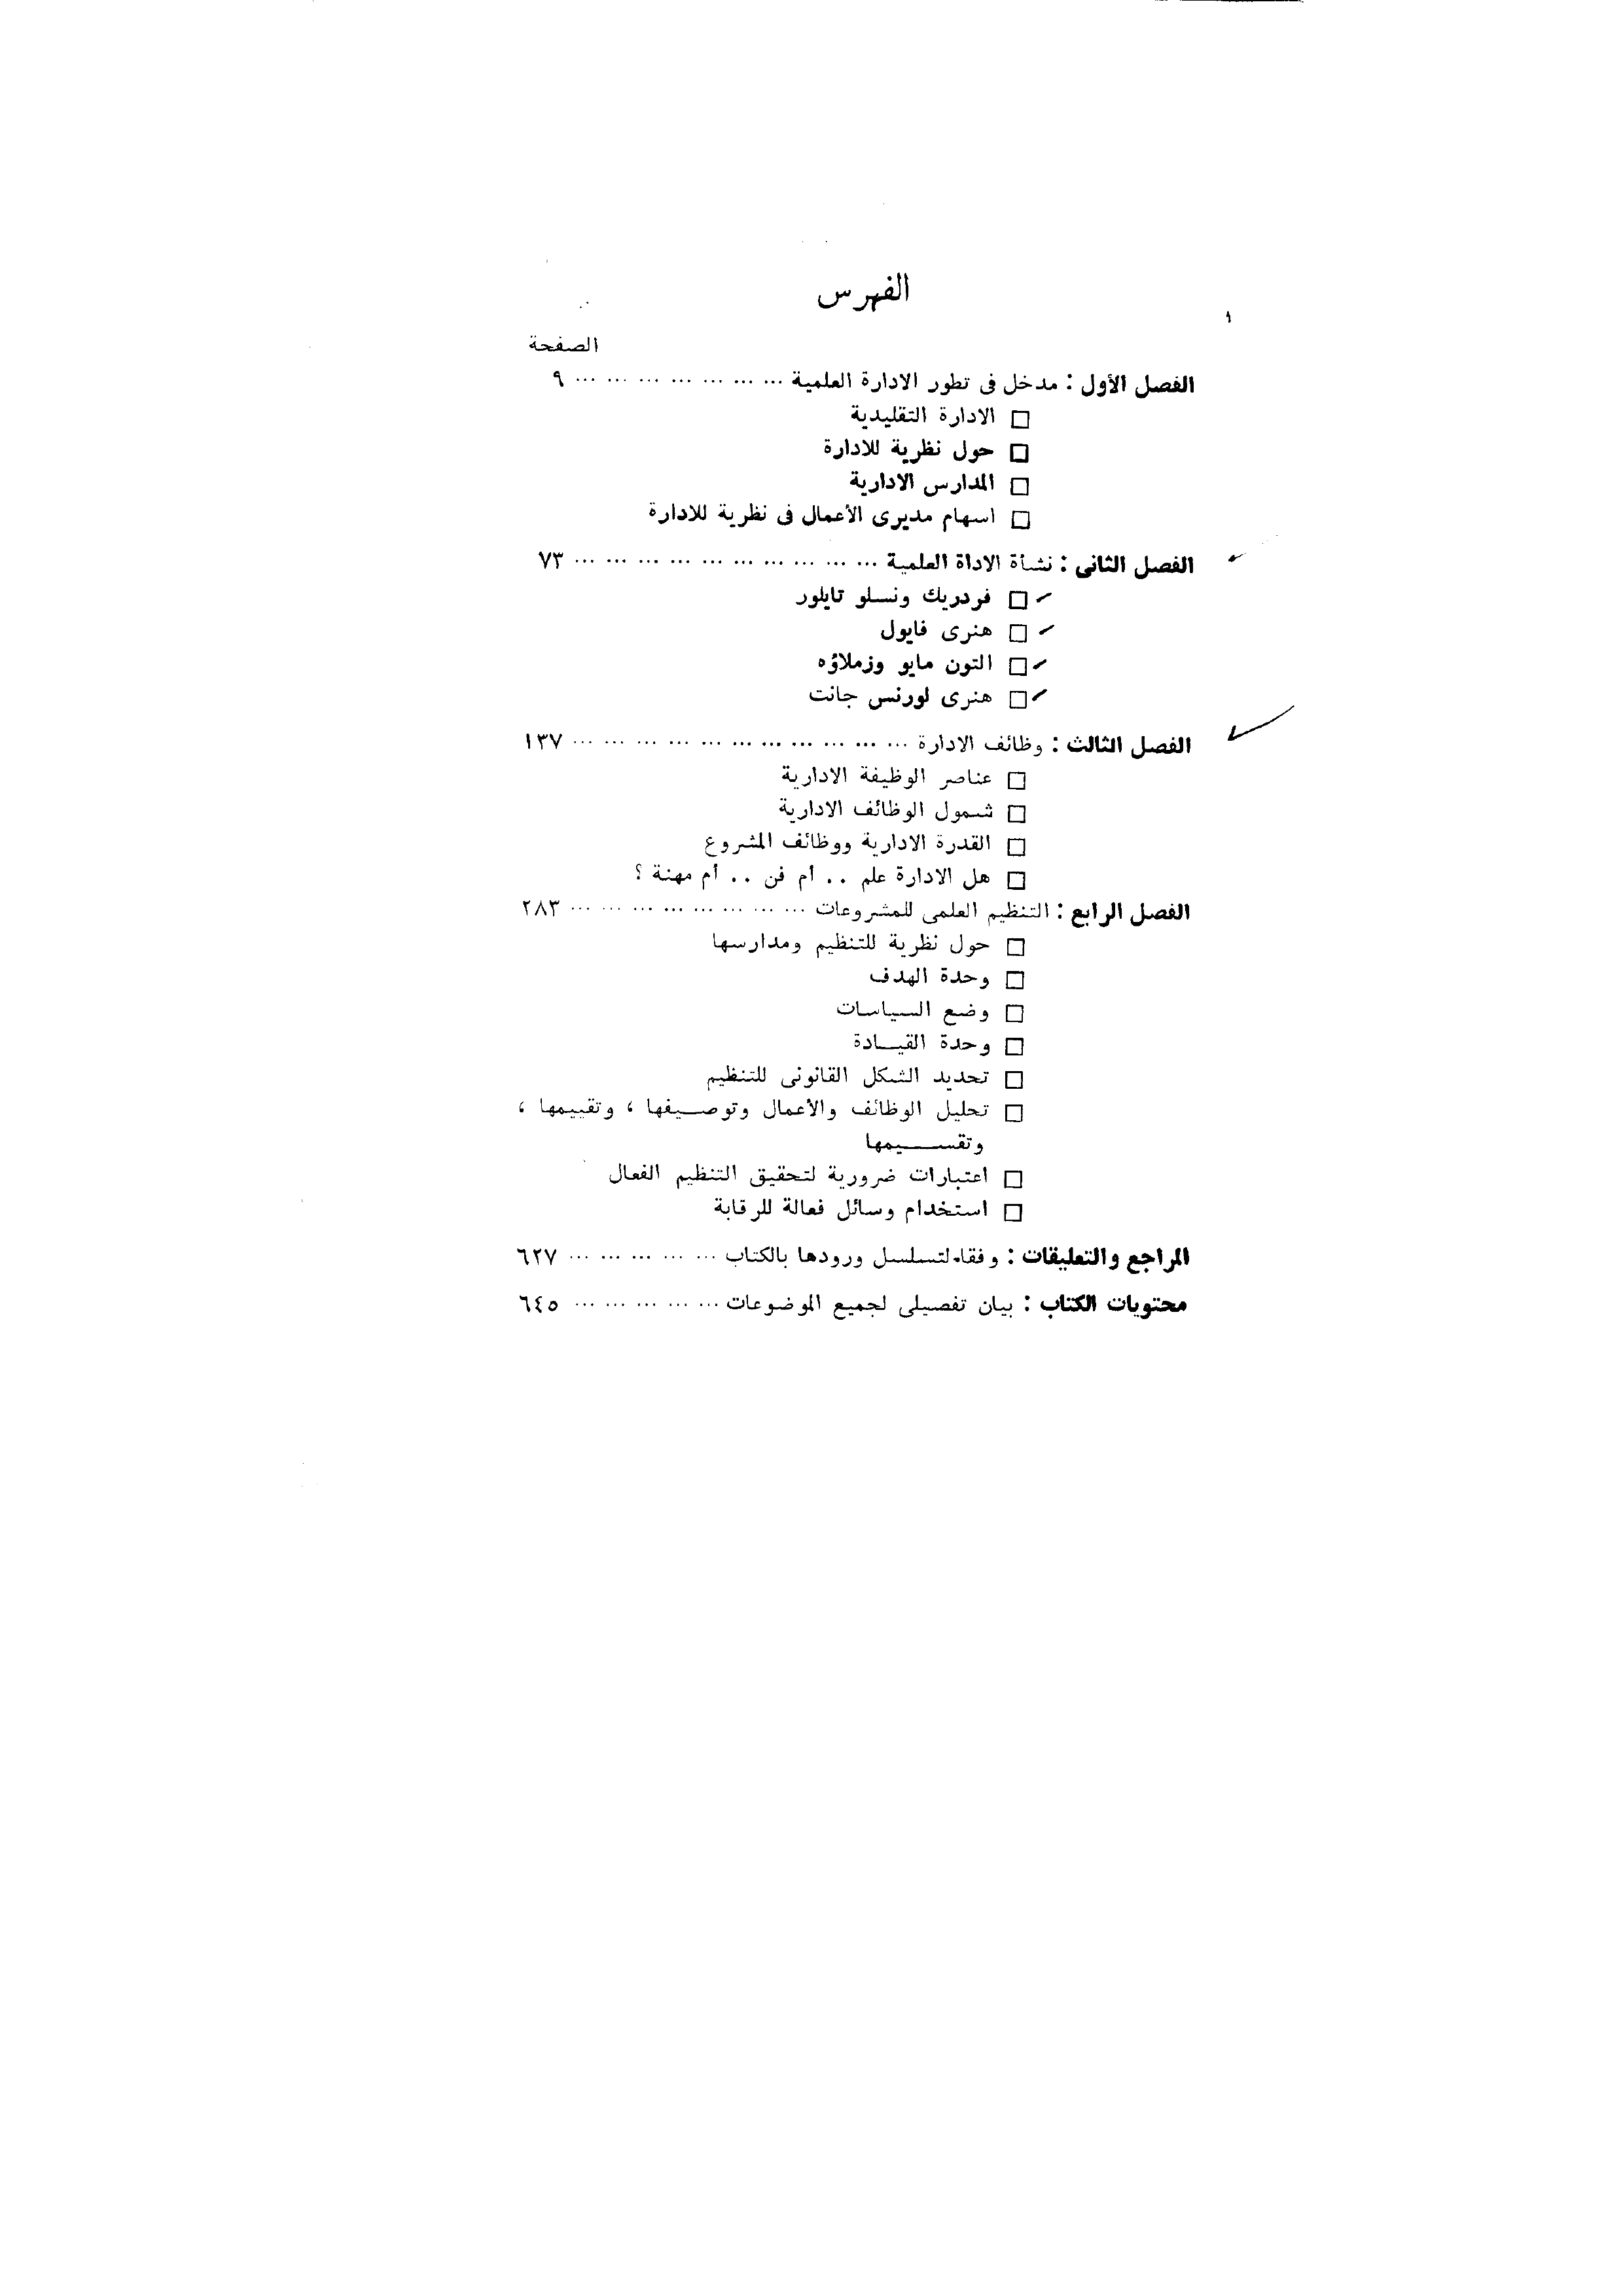 الفهرس
الصفحة
الفصل الأول : مدخل فى تطور الادارة العلمية ... ... ... ... ... ... ... ٩
□ الادارة التقليدية
□ حول نظرية للادارة
□ المدارس الادارية
□ اسهام مديرى الأعمال فى نظرية للادارة
الفصل الثانى : نشأة الاداة العلمية ... ... ... ... ... ... ... ... ... ... ٧٣
□ فردريك ونسلو تايلور
□ هنرى فايول
□ التون مايو وزملاؤه
□ هنرى لورنس جانت
الفصل الثالث : وظائف الادارة ... ... ... ... ... ... ... ... ... ... ... ١٣٧
□ عناصر الوظيفة الادارية
□ شمول الوظائف الادارية
□ القدرة الادارية ووظائف المشروع
□ هل الادارة علم .. أم فن .. أم مهنة ؟
الفصل الرابع : التنظيم العلمى للمشروعات ... ... ... ... ... ... ... ... ٢٨٣
□ حول نظرية للتنظيم ومدارسها
□ وحدة الهدف
□ وضع السياسات
□ وحدة القيادة
□ تحديد الشكل القانونى للتنظيم
□ تحليل الوظائف والأعمال وتوصيفها ، وتقييمها ،
وتقسيمها
□ اعتبارات ضرورية لتحقيق التنظيم الفعال
□ استخدام وسائل فعالة للرقابة
المراجع والتعليقات : وفقا لتسلسل ورودها بالكتاب ... ... ... ... ... ٦٢٧
محتويات الكتاب : بيان تفصيلى لجميع الموضوعات ... ... ... ... ... ٦٤٥